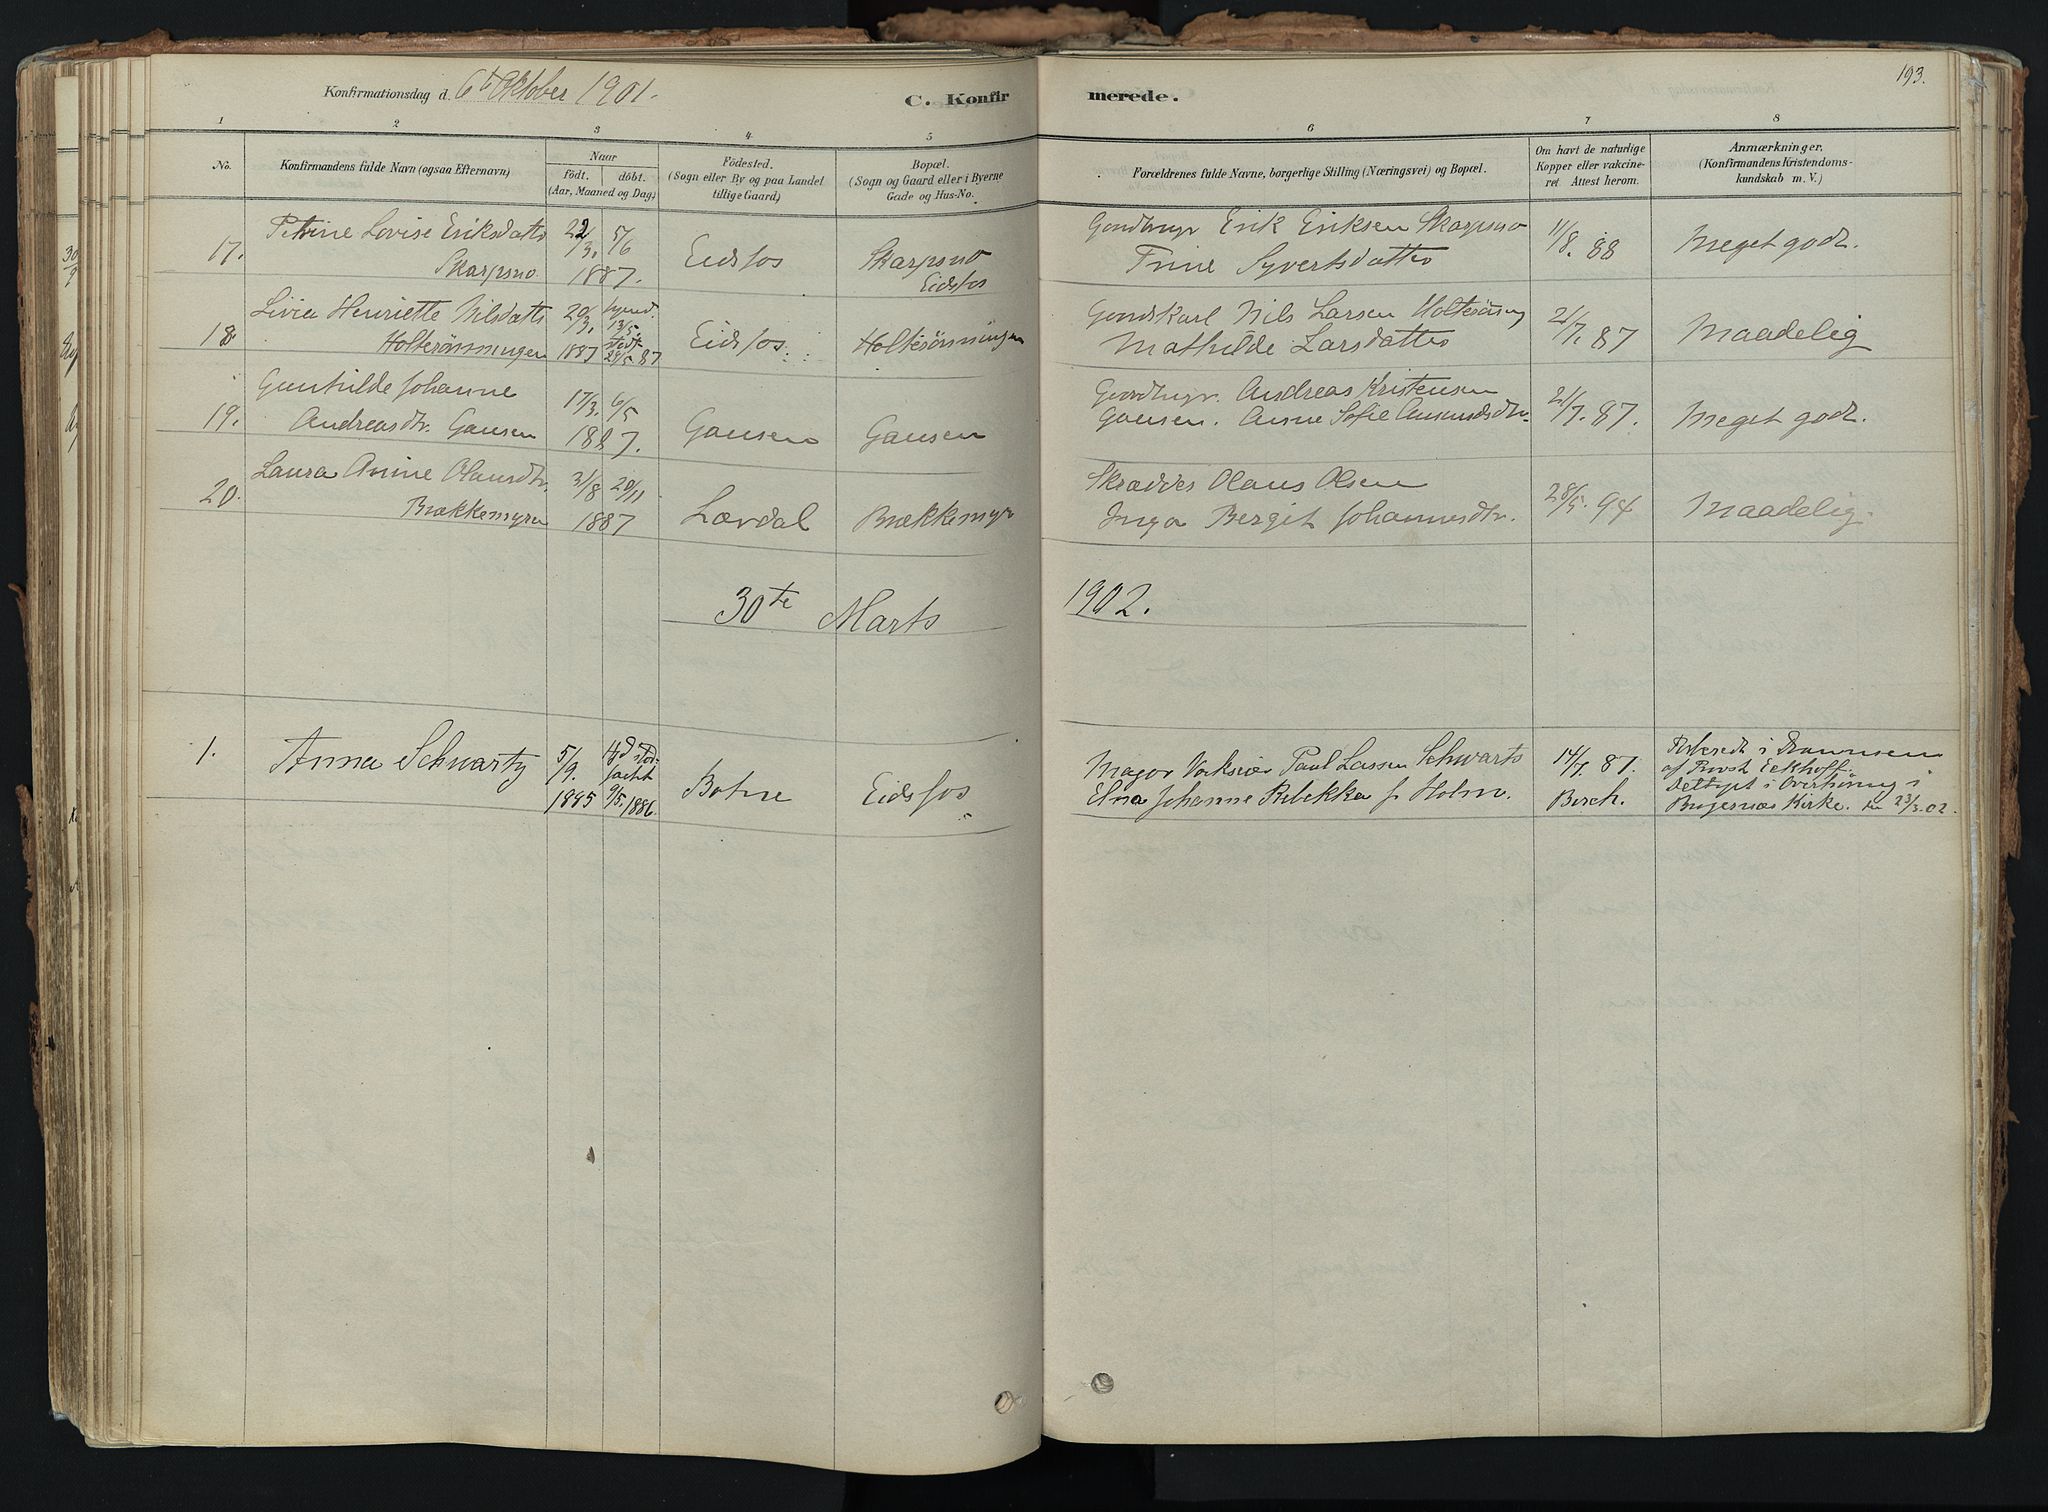 193.
Konfirmationsdag d. 6te Oktober 1901.
C. Konfirmerede.
1 2 3 4 5 6 7 8
No.
Konfirmandens fulde Navn (ogsaa Efternavn)
Naar
födt. döbt.
(Aar, Maaned og Dag)
Födested.
(Sogn eller By og paa Landet
tillige Gaard)
Bopæl.
(Sogn og Gaard eller i Byerne
Gade og Hus-No.
Forældrenes fulde Navne, borgerlige Stilling (Næringsvei) og Bopæl.
Om havt de naturlige
Kopper eller vakcine-
ret Attest herom.
Anmærkninger.
(Konfirmandens Kristendoms-
kundskab m. V.)
17. Petrine Lovise Eriksdatter
Skarpsno
22/3. 5/6
1887.
Eidsfos
Skarpsno
Eidsfos
Erik Eriksen Skarpsno
Trine Syvertsdatter
11/8. 88
Meget godt.
18. Livia Henriette Nilsdatter
Holterönningen
20/3. hjemd.
13/5.
1887 stedf.
28/5 87
Eidsfos
Holterönningen
Nils Larsen
Mathilde Larsdatter
21/7. 87
Maadelig
19. Gunhilde Johanne
Andreasdtr. Gausen
17/3. 6/5
1887.
Gausen
Gausen
Andreas Kristensen
Gausen. Anne Sofie Amundsdtr.
21/7. 87.
Meget godt.
20. Laura Anine Olausdtr.
Brækkemyra
31/8 20/11
1887
Lærdal
Brækkemyr
Skrædder Olaus Olsen
Inga Berget Johannesdtr.
28/5. 94
Maadelig.
30te Marts 1902.
1. Anna Schwartz
5/9. 1885
9/5. 1886.
Botne
Eidsfos
Major Paul Lassen Schwarts
Elna Johanne Rebekka f. Holm.
14/7. 87.
Borch.
i Drammen
af Provst Eckhoff.
Deltaget i Overhöring i
Bragernæs Kirke. den 23/3. 02.